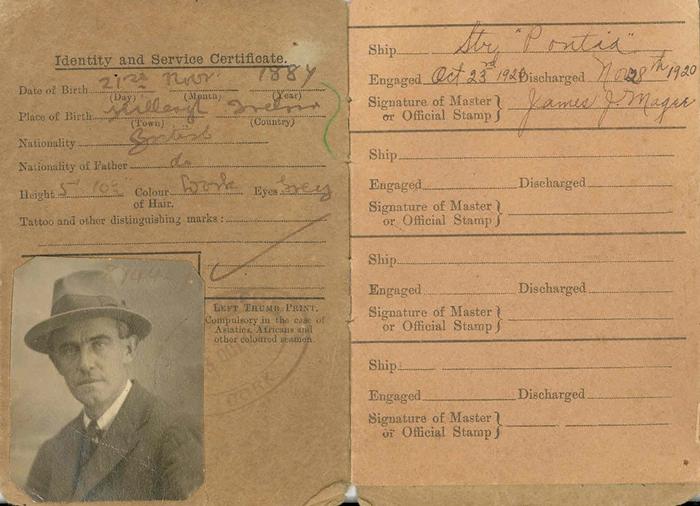 Identity and Service Certificate.
Date of Birth 21st Novr. 1887
(Day) (Month) (Year)
Place of Birth Ireland
(Town) (Country)
Nationality British
Nationality of Father do
Height 5' 10½ Colour Dark Eyes Grey
of Hair.
Tattoo and other distinguishing marks :
LEFT THUMB PRINT.
Compulsory in the case of
Asiatics, Africans and
other coloured seamen
Ship Str "Pontia"
Engaged Oct 23rd 1920 Discharged Nov 28th 1920
Signature of Master } James J. Mager
or Official Stamp
Ship
Engaged Discharged
Signature of Master }
or Official Stamp
Ship
Engaged Discharged
Signature of Master }
or Official Stamp
Ship
Engaged Discharged
Signature of Master }
or Official Stamp